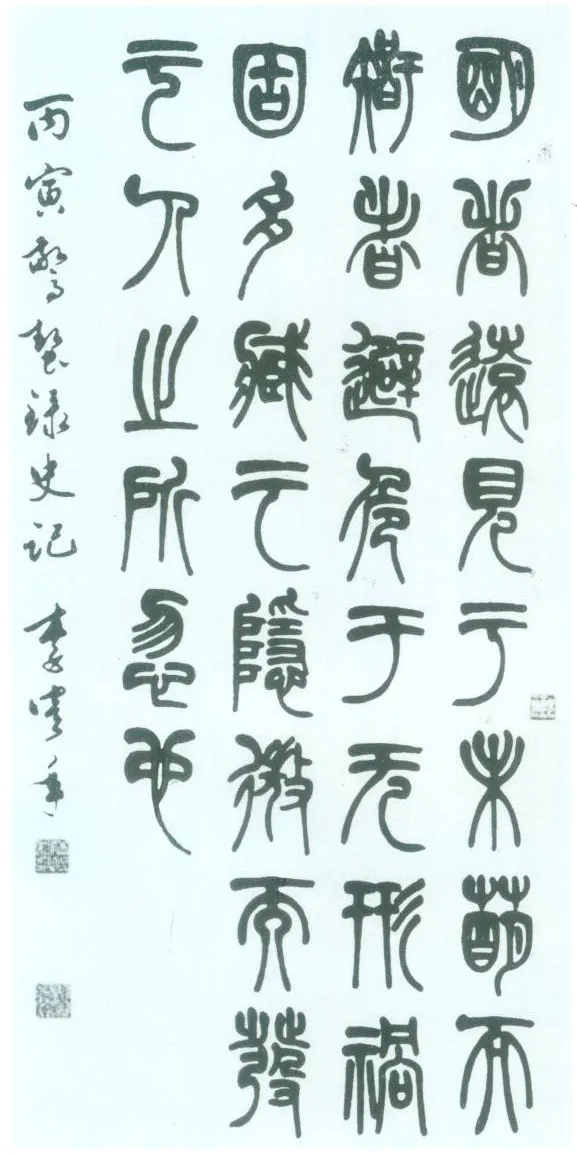 明者遠見于未萌而
智者避危于无形禍
固多藏于隱微而發
于人之所忽也
丙寅驚蟄録史記 李鶴年